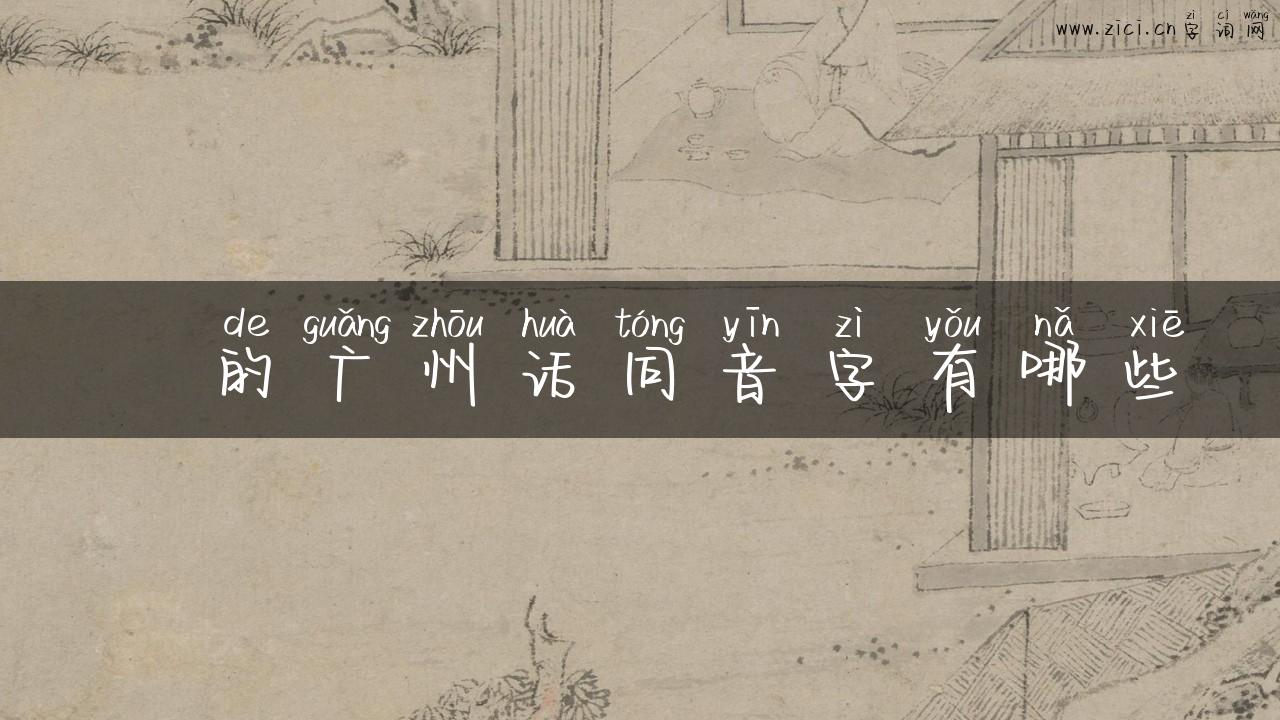 zì cí wǎng
www.zici.cn 字 词 网
de guǎng zhōu huà tóng yīn zì yǒu nǎ xiē
的 广 州 话 同 音 字 有 哪 些